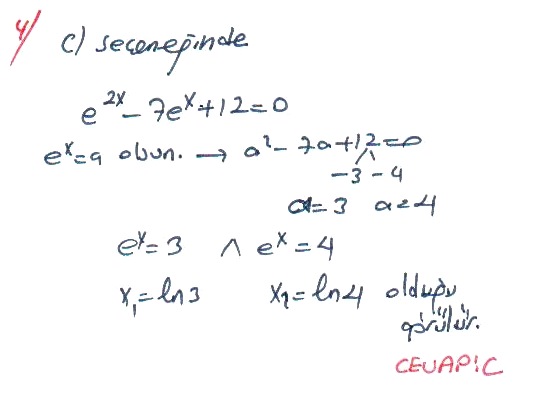 4/ c) seçeneğinde
e^{2x} - 7e^x + 12 = 0
e^x = a olsun. → a² - 7a + 12 = 0
-3 -4
a = 3 a = 4
e^x = 3 ∧ e^x = 4
x₁ = ln3 x₂ = ln4 olduğu
görülür.
CEVAP: C